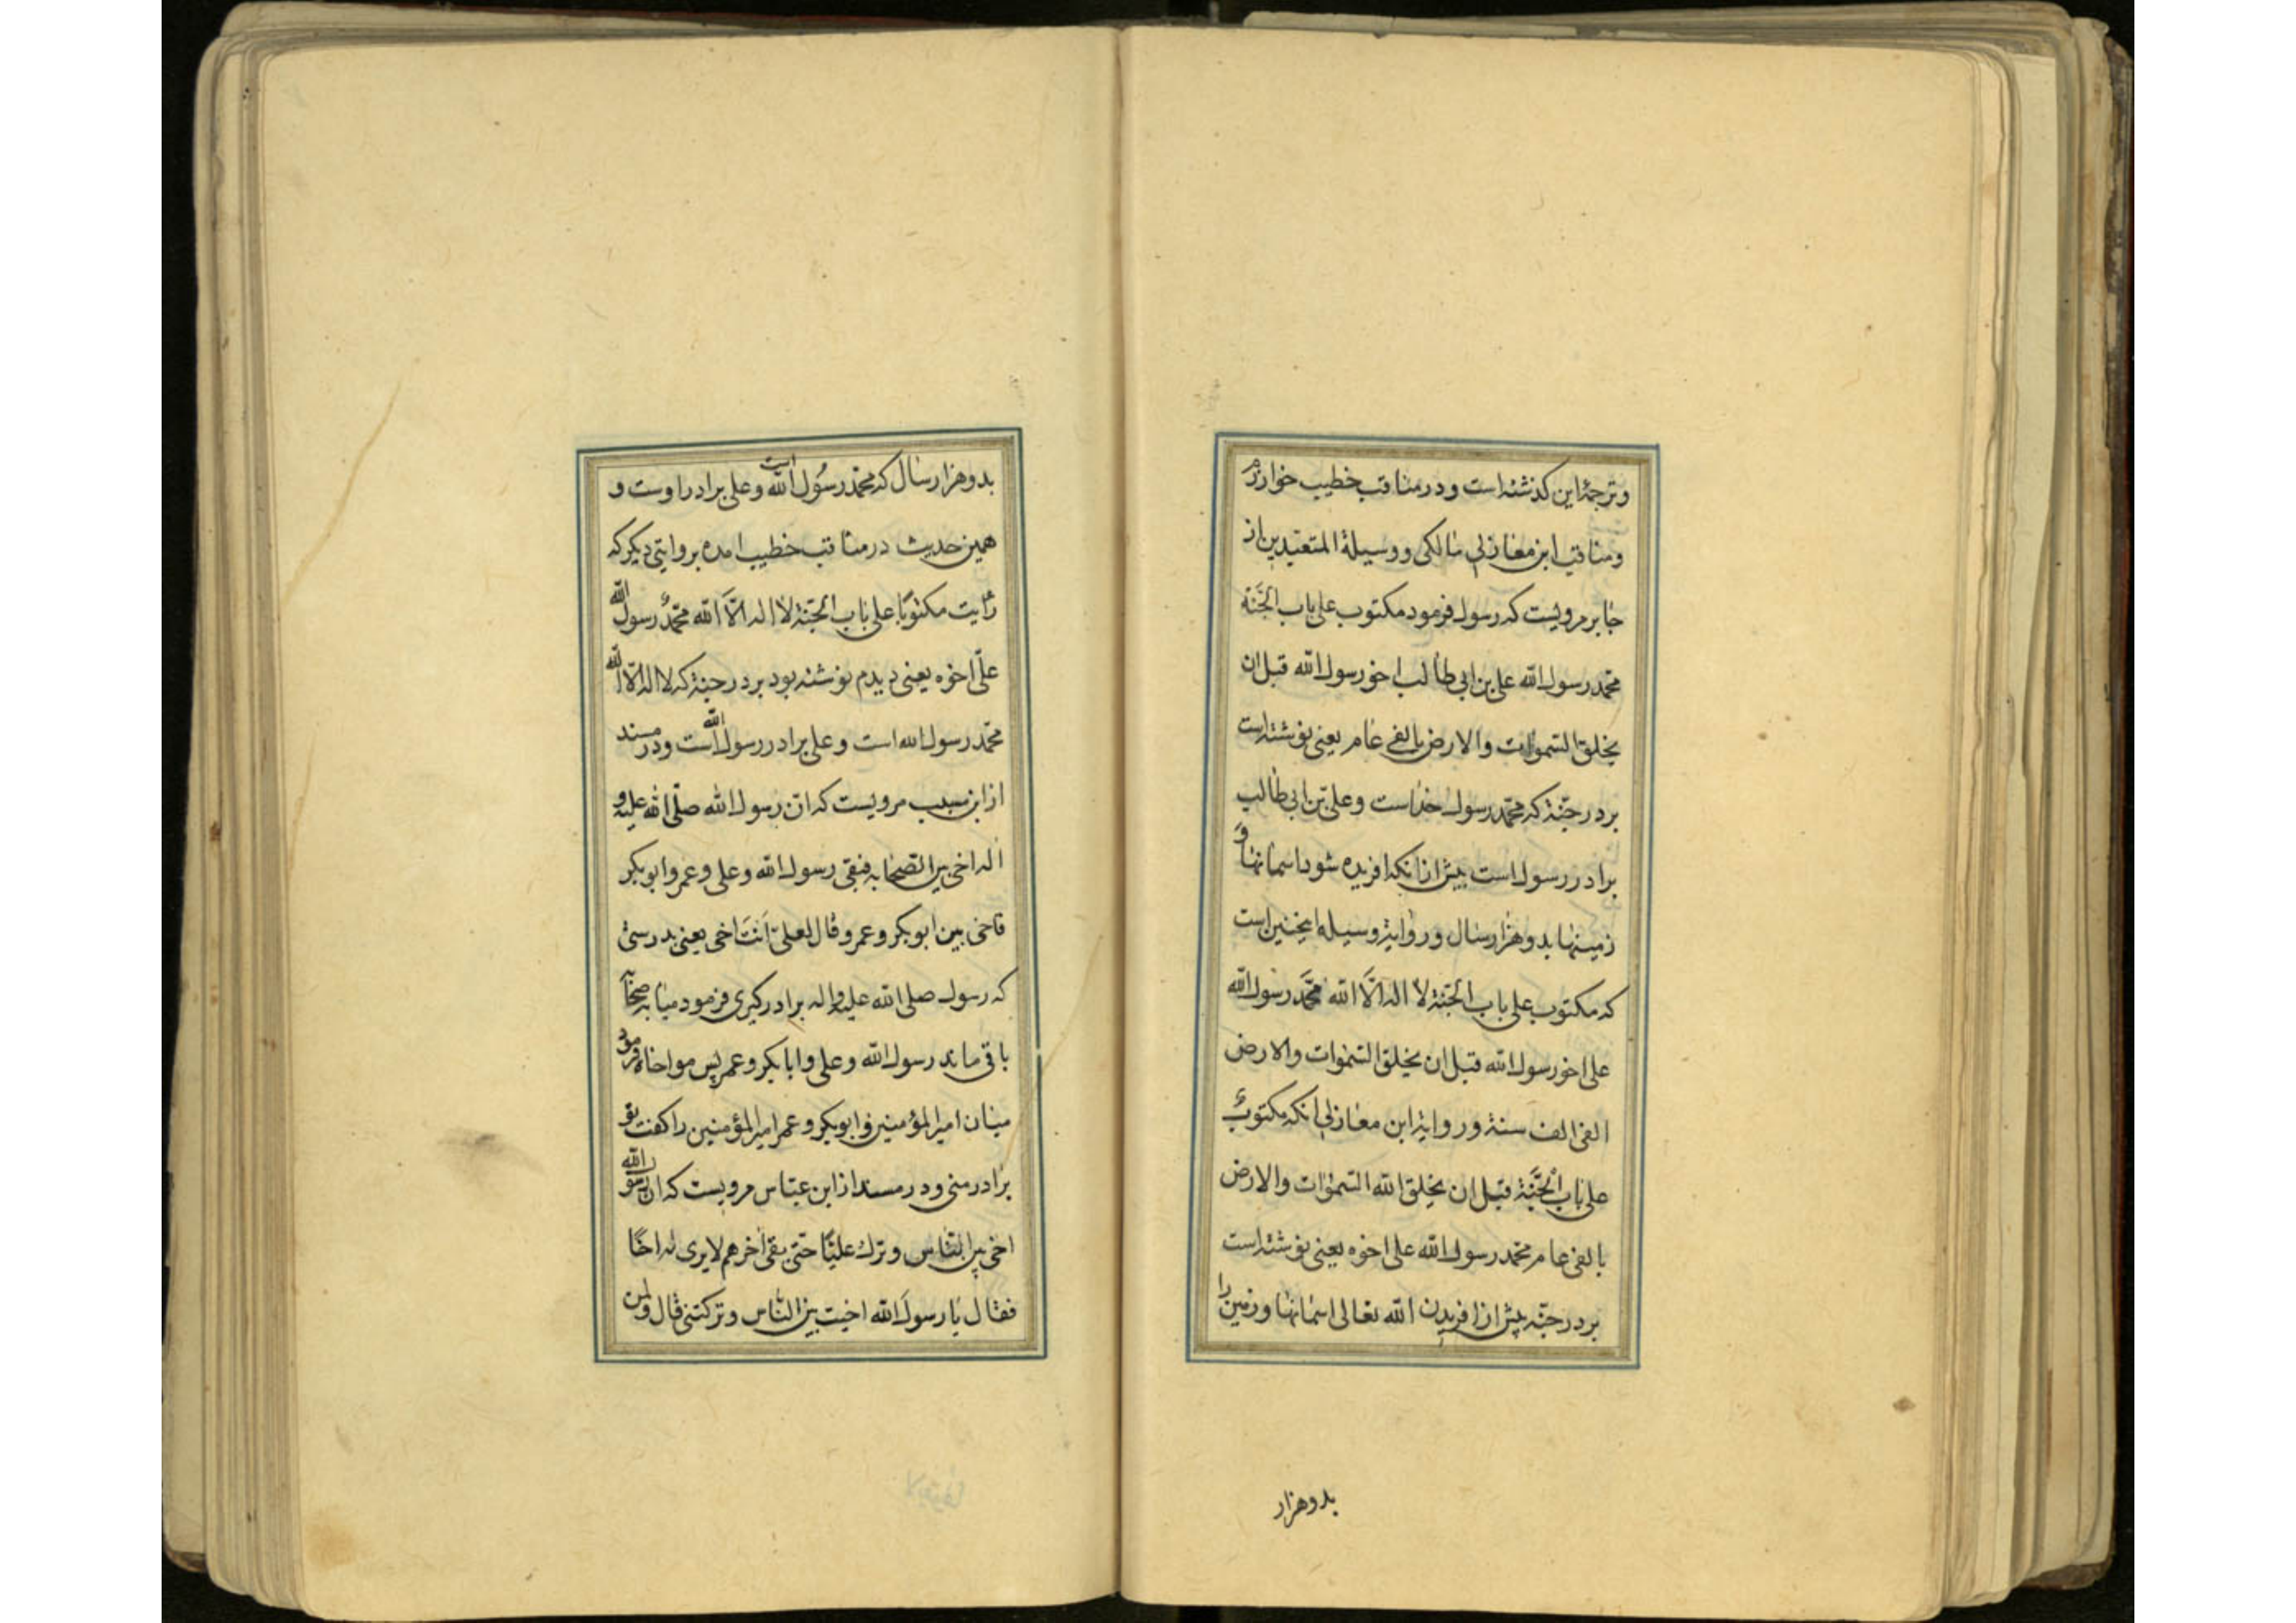 وترجمۀ این کذشته است ودر مناقب خطیب خوارزم
ومناقب ابن مغازلی مالکی ووسیلة المتعبدین از
جابر مرویست که رسول فرمود مکتوب علی باب الجَنّة
محمد رسول الله علی بن ابی طالب اخو رسول الله قبل ان
یخلق السّموات والارض بالفی عام یعنی نوشته است
بر در جنّة که محمّد رسول خداست وعلی بن ابی طالب
برادر رسول است پیش ازانکه افریده شود اسمانها وَ
زمینها بدو هزار سال ور وایة وسیله اینچنین است
که مکتوب علی باب الجنّة لا اله الّا الله محَمَّد رسول الله
علی اخو رسول الله قبل ان یخلق السّموات والارض
الفی الف سنة ور وایة ابن مغازلی انکه مکتوبٌ
علی باب الْجَنَّة قبل ان یخلق الله السّموات والارض
بالفی عام محمّد رسول الله علی اخوه یعنی نوشته است
بر در جنّه پیش از افریدن الله تعالی اسمانها وزمین را
بدو هزار
بدو هزار سال که محمّد رسُول الله است وعلی برادر اوست و
همین حدیث در مناقب خطیب امده بر وایتی دیکر که
رَایت مکتوبًا علی باب الجنّة لا اله الّا الله محمّدٌ رسول الله
علیّ اخوه یعنی دیدم نوشته بود بر در جنّة که لا اله الّا الله
محمّد رسول الله است وعلی برادر رسول الله است ودر مسند
از ابن مسیب مرویست که انّ رسول الله صلّی الله علیه و
اله اخی بین الصّحابه فبقی رسول الله وعلی وعمر وابو بکر
فاخی بین ابو بکر وعمر وقال لعلی اَنتَ اخی یعنی بدرستی
که رسول صلی الله علیه واله برادر کیری فرمود میانه صحابه
باقی ماند رسول الله وعلی وابا بکر وعمر پس مواخاة فرمود
میان امیر المؤمنین وابو بکر وعمر امیر المؤمنین را کفت تو
برادر منی ودر مسند از ابن عبّاس مرویست که انّ رسول الله
اخی بین النّاس وترك علیًّا حتّی بقی اخرهم لا یری له اخًا
فقال یا رسولَ الله اخیت بین النّاس وترکتنی قال ولمن